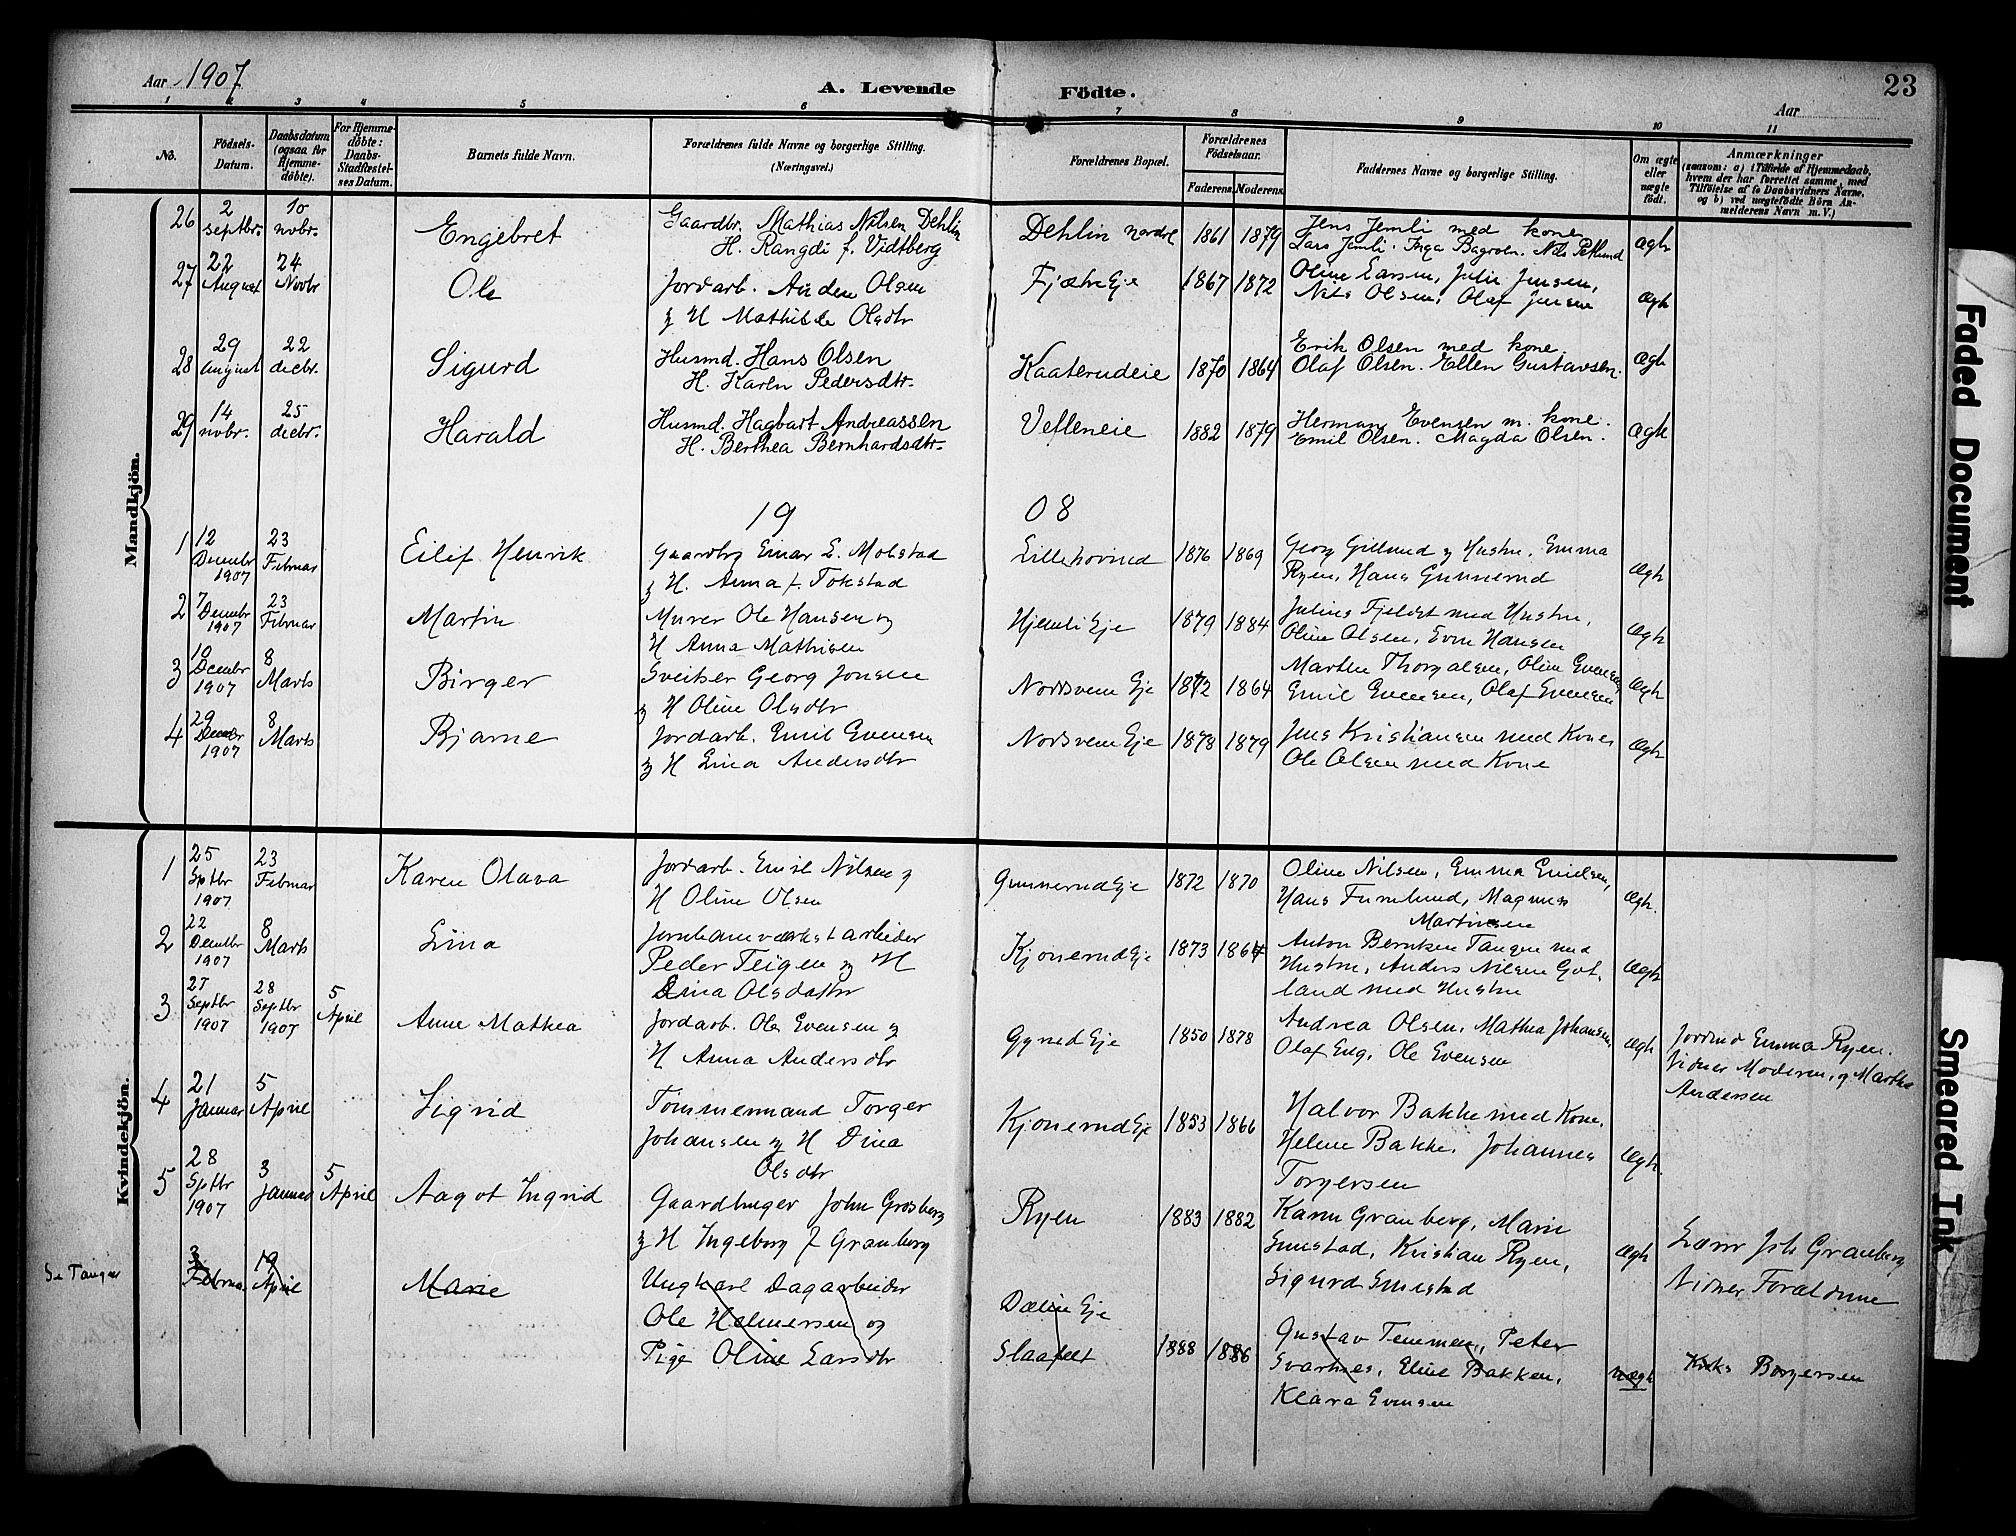 Aar 1907
A. Levende Födte.
Aar
23
1 2 3 4 5 6 7 8 9 10 11
No.
Födsels-Datum.
Daabsdatum (ogsaa for Hjemmedöbte).
For Hjemmedöbte: Daabs-Stadfæstelses Datum.
Barnets fulde Navn.
Forældrenes fulde Navne og borgerlige Stilling. (Næringsvei.)
Forældrenes Bopæl.
Forældrenes Födselsaar.
Faderens. Moderens.
Faddernes Navne og borgerlige Stilling.
Om ægte eller uægte födt.
Anmærkninger
(saasom: a) i Tilfælde af Hjemmedaab, hvem der har forrettet samme, med Tilföielse af to Daabsvidners Navne, og b) ved uægtefödte Börn Anmelderens Navn m. V.)
Mandkjön.
26 2 septbr. 10 novbr. Engebret Gaardbr. Mathias Nilsen Dehlin Dehlin nordre 1861 1879 Jens Jemli med kone. Ægte
H. Rangdi f. Vidtberg Lars Jemli. Inga Bagroen. Nils Petlund
27 22 August 24 Novbr Ole Jordarb. Anden Olsen Fjætre Eje 1867 1872 Oline Larsen, Julie Jensen, Ægte
og H Mathilde Olsdtr Nils Olsen, Olaf Jensen
28 29 August 22 decbr. Sigurd Husmd. Hans Olsen Kaaterudeie 1870 1864 Erik Olsen med kone. Ægte
H. Karen Pedersdtr. Olaf Olsen. Ellen Gustavsen.
29 14 novbr. 25 decbr. Harald Husmd. Hagbart Andreassen Vefleneie 1882 1879 Herman Evensen m. kone. Ægte
H. Berthea Bernhardsdtr. Emil Olsen. Magda Olsen.
19 08
1 12 Decembr 1907 23 Februar Eilif Henrik Gaardbr Einar L. Molstad Lillehovind 1876 1869 Georg Gillund og Hustru, Emma Ægte
og H. Anna f. Tokstad Ryen, Hans Gunnerud
2 7 Decembr 1907 23 Februar Martin Murer Ole Hansen og Hjemli Eje 1879 1884 Julius Fjeldst med Hustru, Ægte
H Anna Mathisen Oline Olsen, Even Hansen
3 10 Decembr 1907 8 Marts Birger Sveitser Georg Jonsen Nordsveen Eje 1872 1864 Marthe Thorgalsen, Oline Evensen Ægte
og H Oline Olsdtr Emil Evensen, Olaf Evensen
4 29 Decembr 1907 8 Marts Bjarne Jordarb. Emil Evensen Nordsveen Eje 1878 1879 Jens Kristiansen med Kone Ægte
og H Lina Andersdtr Ole Olsen med Kone
Kvindekjön.
1 25 Septbr 1907 23 Februar Karen Olava Jordarb. Emil Nilsen og Gunnerud Eje 1872 1870 Oline Nilsen, Emma Emilsen, Ægte.
H Oline Olsen Hans Furulund, Magnus
Martinsen
2 22 Decembr 1907 8 Marts Lina Jernbaneværkstarbeider Kjonerud Eje 1873 1864 Anton Berntsen Tangen med Ægte
Peder Teigen og H Hustru, Anders Nilsen Got
Dina Olsdatter land med Hustru
3 27 Septbr 1907 28 Septbr 1907 5 April Anne Mathea Jordarb. Ole Evensen og Gyrud Eje 1850 1878 Andrea Olsen, Mathea Johansen, Ægte Jordmd Emma Ryen.
H Anna Andersdtr Olaf Eng, Ole Evensen Vidner Moderen, og Marthe
Andersen
4 21 Januar 5 April Sigrid Tømmermand Torger Kjonerud Eje 1853 1866 Halvor Bakke med Kone, Ægte.
Johansen og H Dina Helene Bakke, Johannes
Olsdtr Torgersen
5 28 Septbr 1907 3 Januar 5 April Aagot Ingrid Gaardbruger John Grosberg Ryen 1883 1882 Karen Granberg, Marie Ægte Lærer Joh Granberg
og H Ingeborg f Granberg Smestad, Kristian Ryen, Vidner Forældrene
Sigurd Smestad
Se Tangen 3 Februar 19 April Marie Ungkarl Dagarbeider Dælin Eje
Ole Halmersen og
Pige Oline Larsdtr Slaatlet 1888 1886 Gustav Temmen, Peter uægte Borgersen
Svartnes, Eline Bakken,
Klara Evensen
Faded Document
Smeared Ink